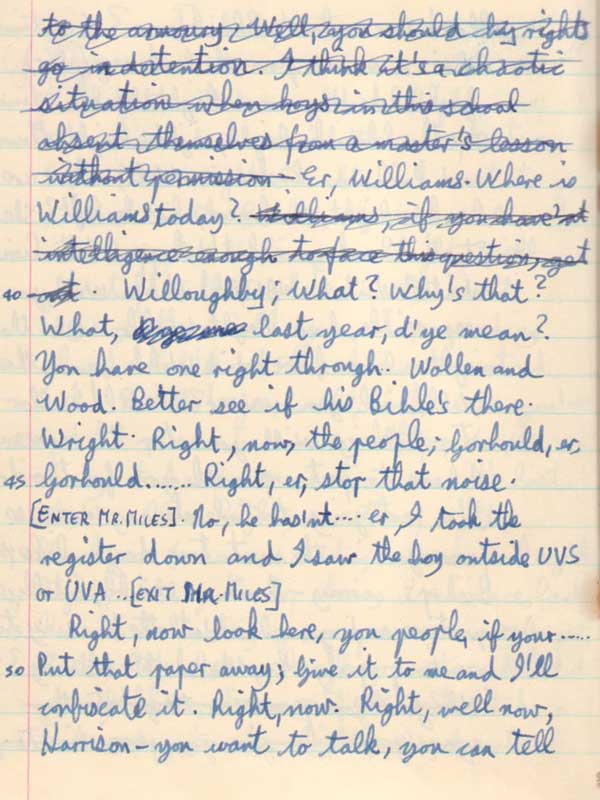 to the armoury. Well, you should by rights
go in detention. I think it's a chaotic
situation when boys in this school
absent themselves from a master's lesson
without permission. Er, Williams. Where is
Williams today? Williams, if you have'nt
intelligence enough to face this question, get
40 - out. Willoughby; What? Why's that?
What, last year, d'ye mean?
You have one right through. Wollen and
Wood. Better see if his Bible's there.
Wright. Right, now, the people; Gorhould, er,
45 Gorhould....... Right, er, stop that noise.
[ENTER MR. MILES]. No, he has'nt.... er, I took the
register down and I saw the boy outside UVS
or UVA ..[EXIT MR. MILES]
Right, now look here, you people, if your......
50 Put that paper away; Give it to me and I'll
confiscate it. Right, now. Right, well now,
Harrison - you want to talk, you can tell